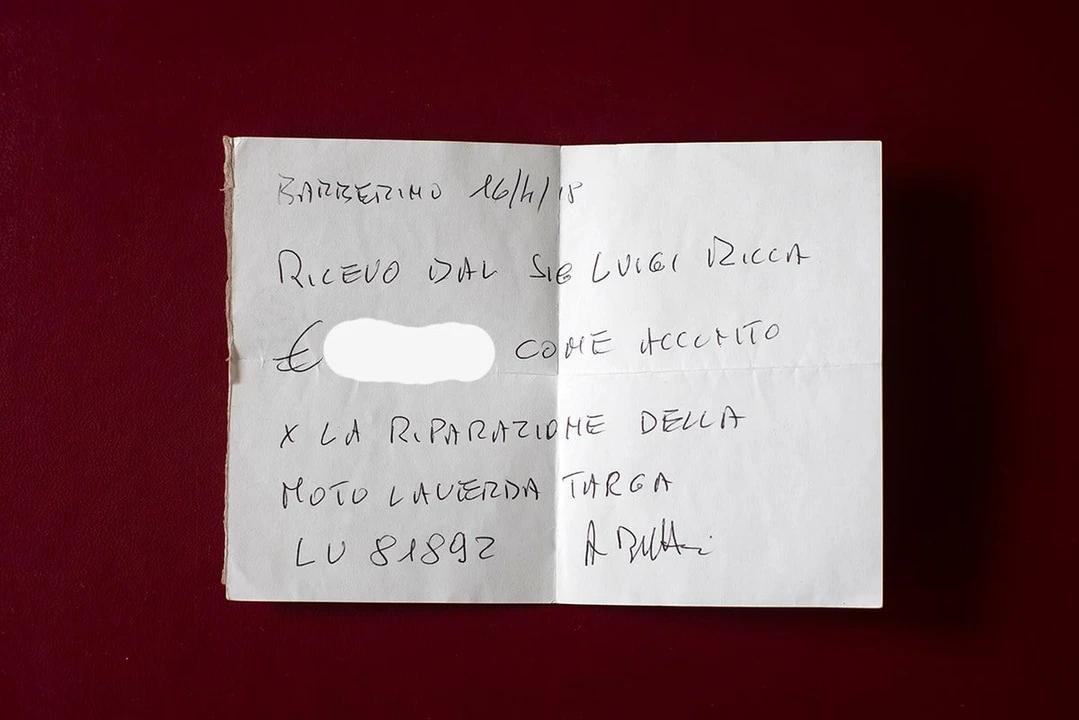 BARBERINO 16/4/18
RICEVO DAL SIG LUIGI RICCA
€ COME ACCONTO
X LA RIPARAZIONE DELLA
MOTO LAVERDA TARGA
LU 81892